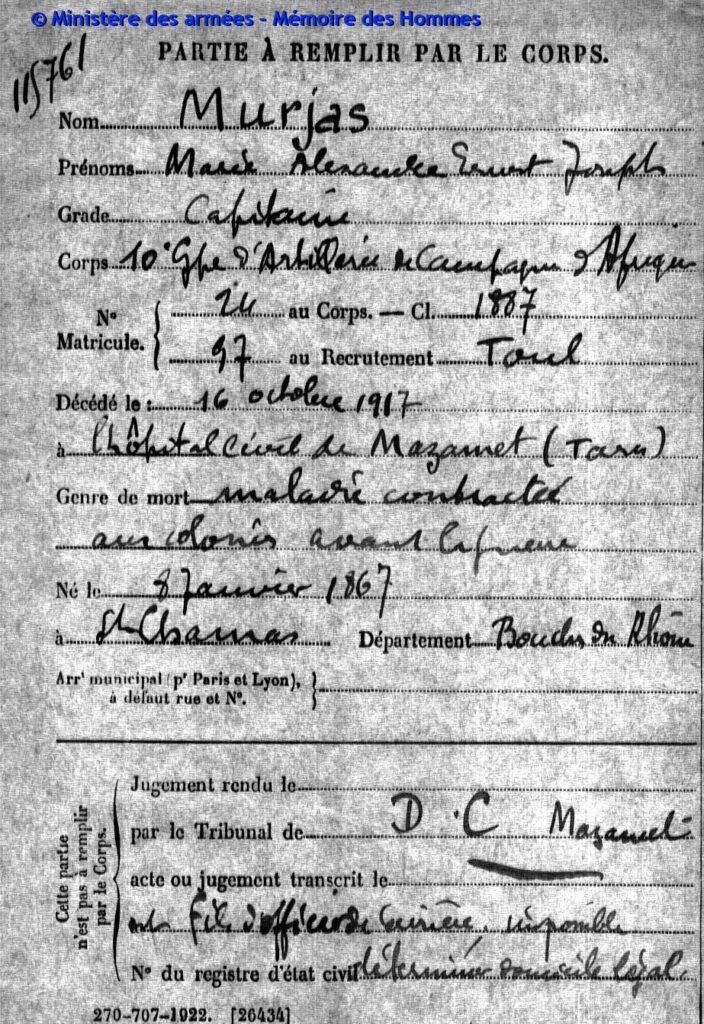 © Ministère des armées - Mémoire des Hommes
115761
PARTIE À REMPLIR PAR LE CORPS.
Nom Murjas
Prénoms Marie Alexandre Ernest Joseph
Grade Capitaine
Corps 10e Gpe d'Artillerie de Campagne d'Afrique
N° Matricule. 24 au Corps. — Cl. 1887
97 au Recrutement Toul
Décédé le : 16 octobre 1917
à l'hôpital civil de Mazamet (Tarn)
Genre de mort maladie contractée
aux colonies avant la guerre
Né le 8 Janvier 1867
à St Chamas Département Bouches du Rhône
Arrt municipal (pr Paris et Lyon),
à défaut rue et N°.
Cette partie
n'est pas à remplir
par le Corps.
Jugement rendu le
par le Tribunal de D.C Mazamet
acte ou jugement transcrit le
fils d'officier de carrière, impossible
N° du registre d'état civil déterminer domicile légal
270-707-1922. [26434]